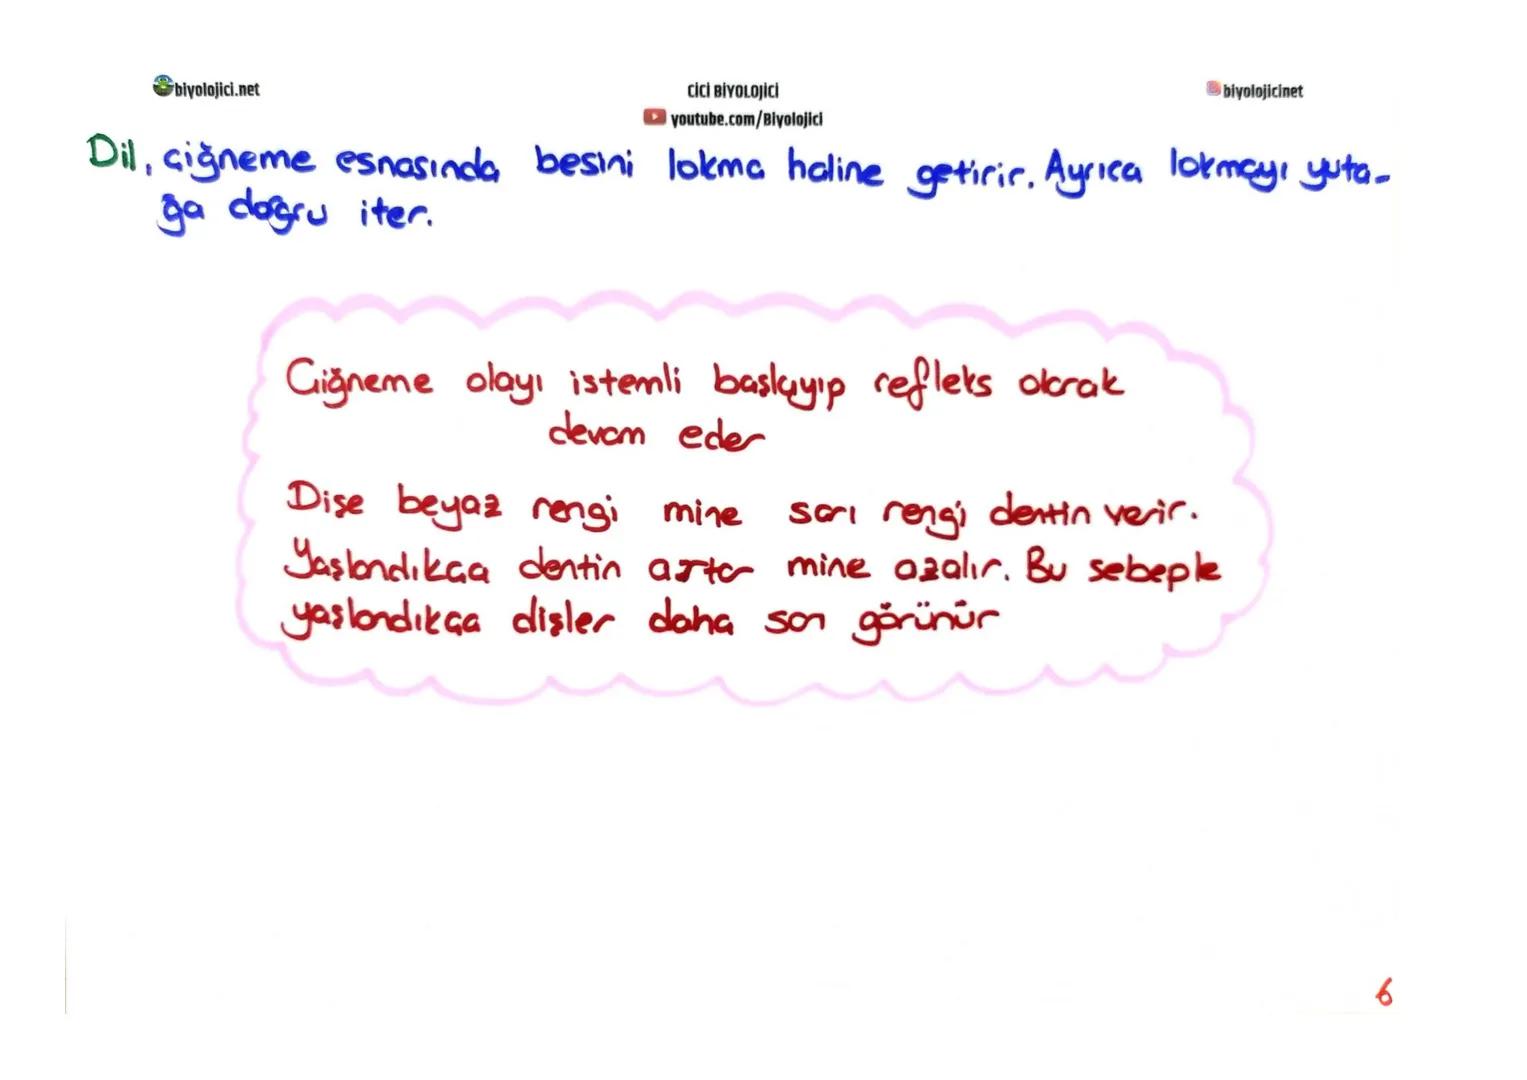 biyolojici.net
CİCİ BİYOLOJİCİ
biyolojicinet
youtube.com/Biyolojici
Dil, çiğneme esnasında besini lokma haline getirir. Ayrıca lokmayı yuta-
ğa doğru iter.
Çiğneme olayı istemli başlayıp refleks olarak
devam eder
Dişe beyaz rengi mine sarı rengi dentin verir.
Yaşlandıkça dentin artar mine azalır. Bu sebeple
yaşlandıkça dişler daha sarı görünür
6